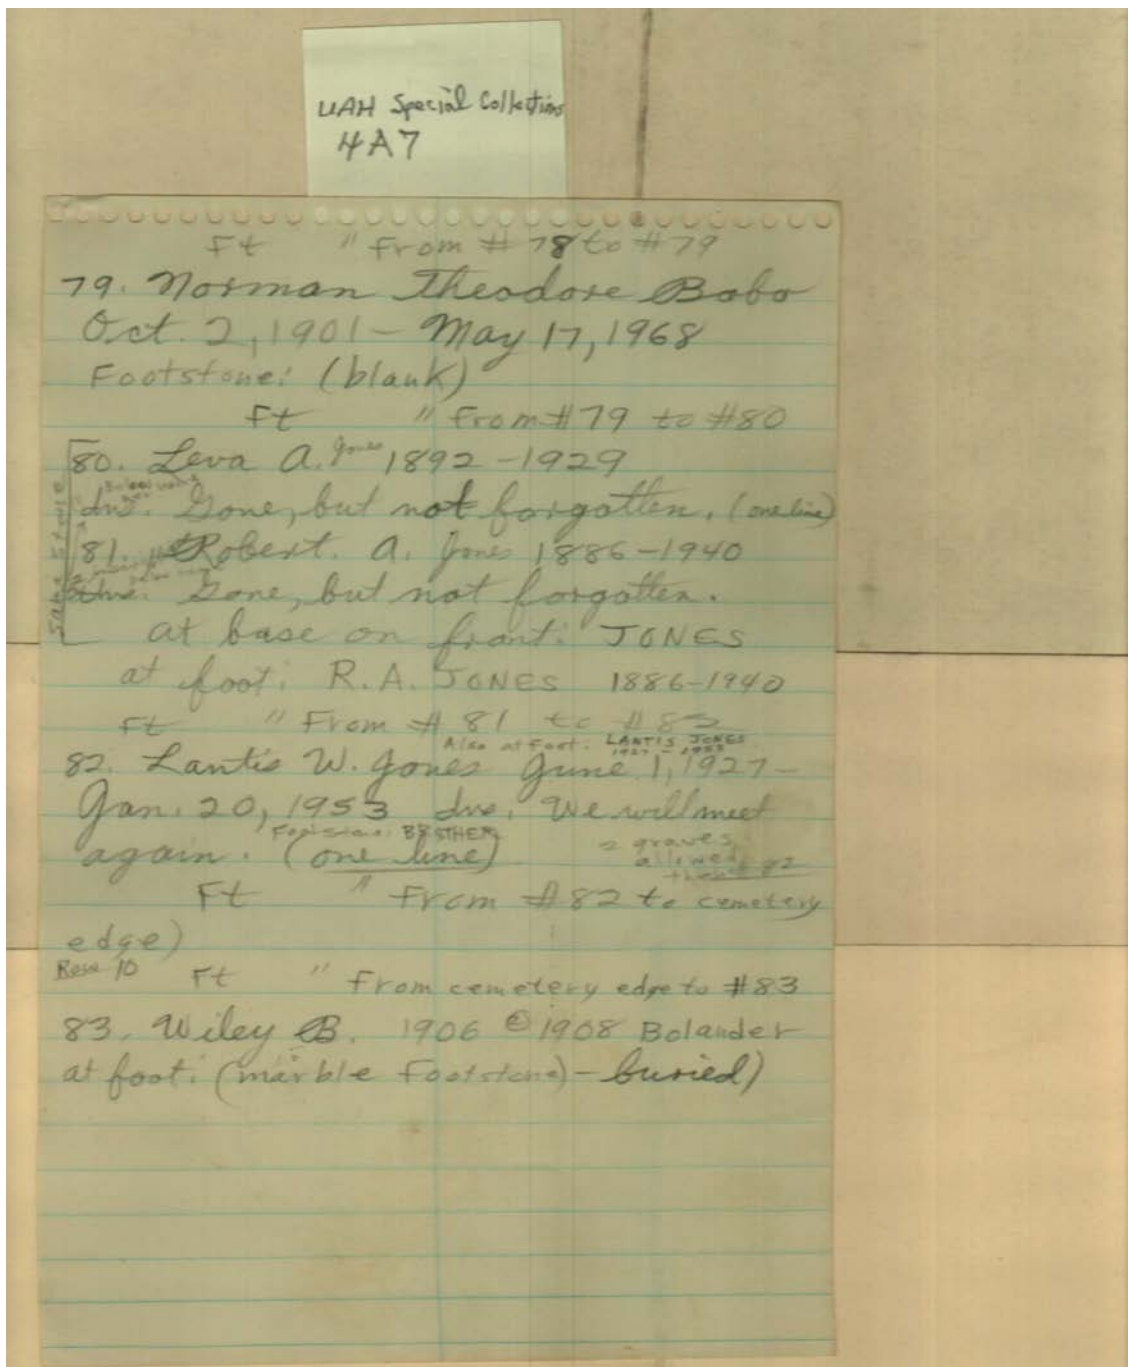 UAH Special Collections
4A7
Ft " From # 78 to # 79
79. Norman Theodore Bobo
Oct. 2, 1901 - May 17, 1968
Footstone: (blank)
Ft " From # 79 to # 80
80. Leva A. Jones 1892 - 1929
Gone, but not forgotten. (one line)
81. Robert. A. Jones 1886 - 1940
Gone, but not forgotten.
same stone
at base on front: JONES
at foot: R.A. JONES 1886-1940
Ft " From # 81 to # 82
Also at Foot: LANTIS JONES
1927 - 1953
82. Lantis W. Jones June 1, 1927 -
Jan. 20, 1953 We will meet
Footstone: BROTHER
again. (one line)
2 graves
allowed
82
Ft " From # 82 to cemetery
edge)
Row 10 Ft " From cemetery edge to # 83
83. Wiley B. 1906 1908 Bolander
at foot: (marble Footstone) - buried)